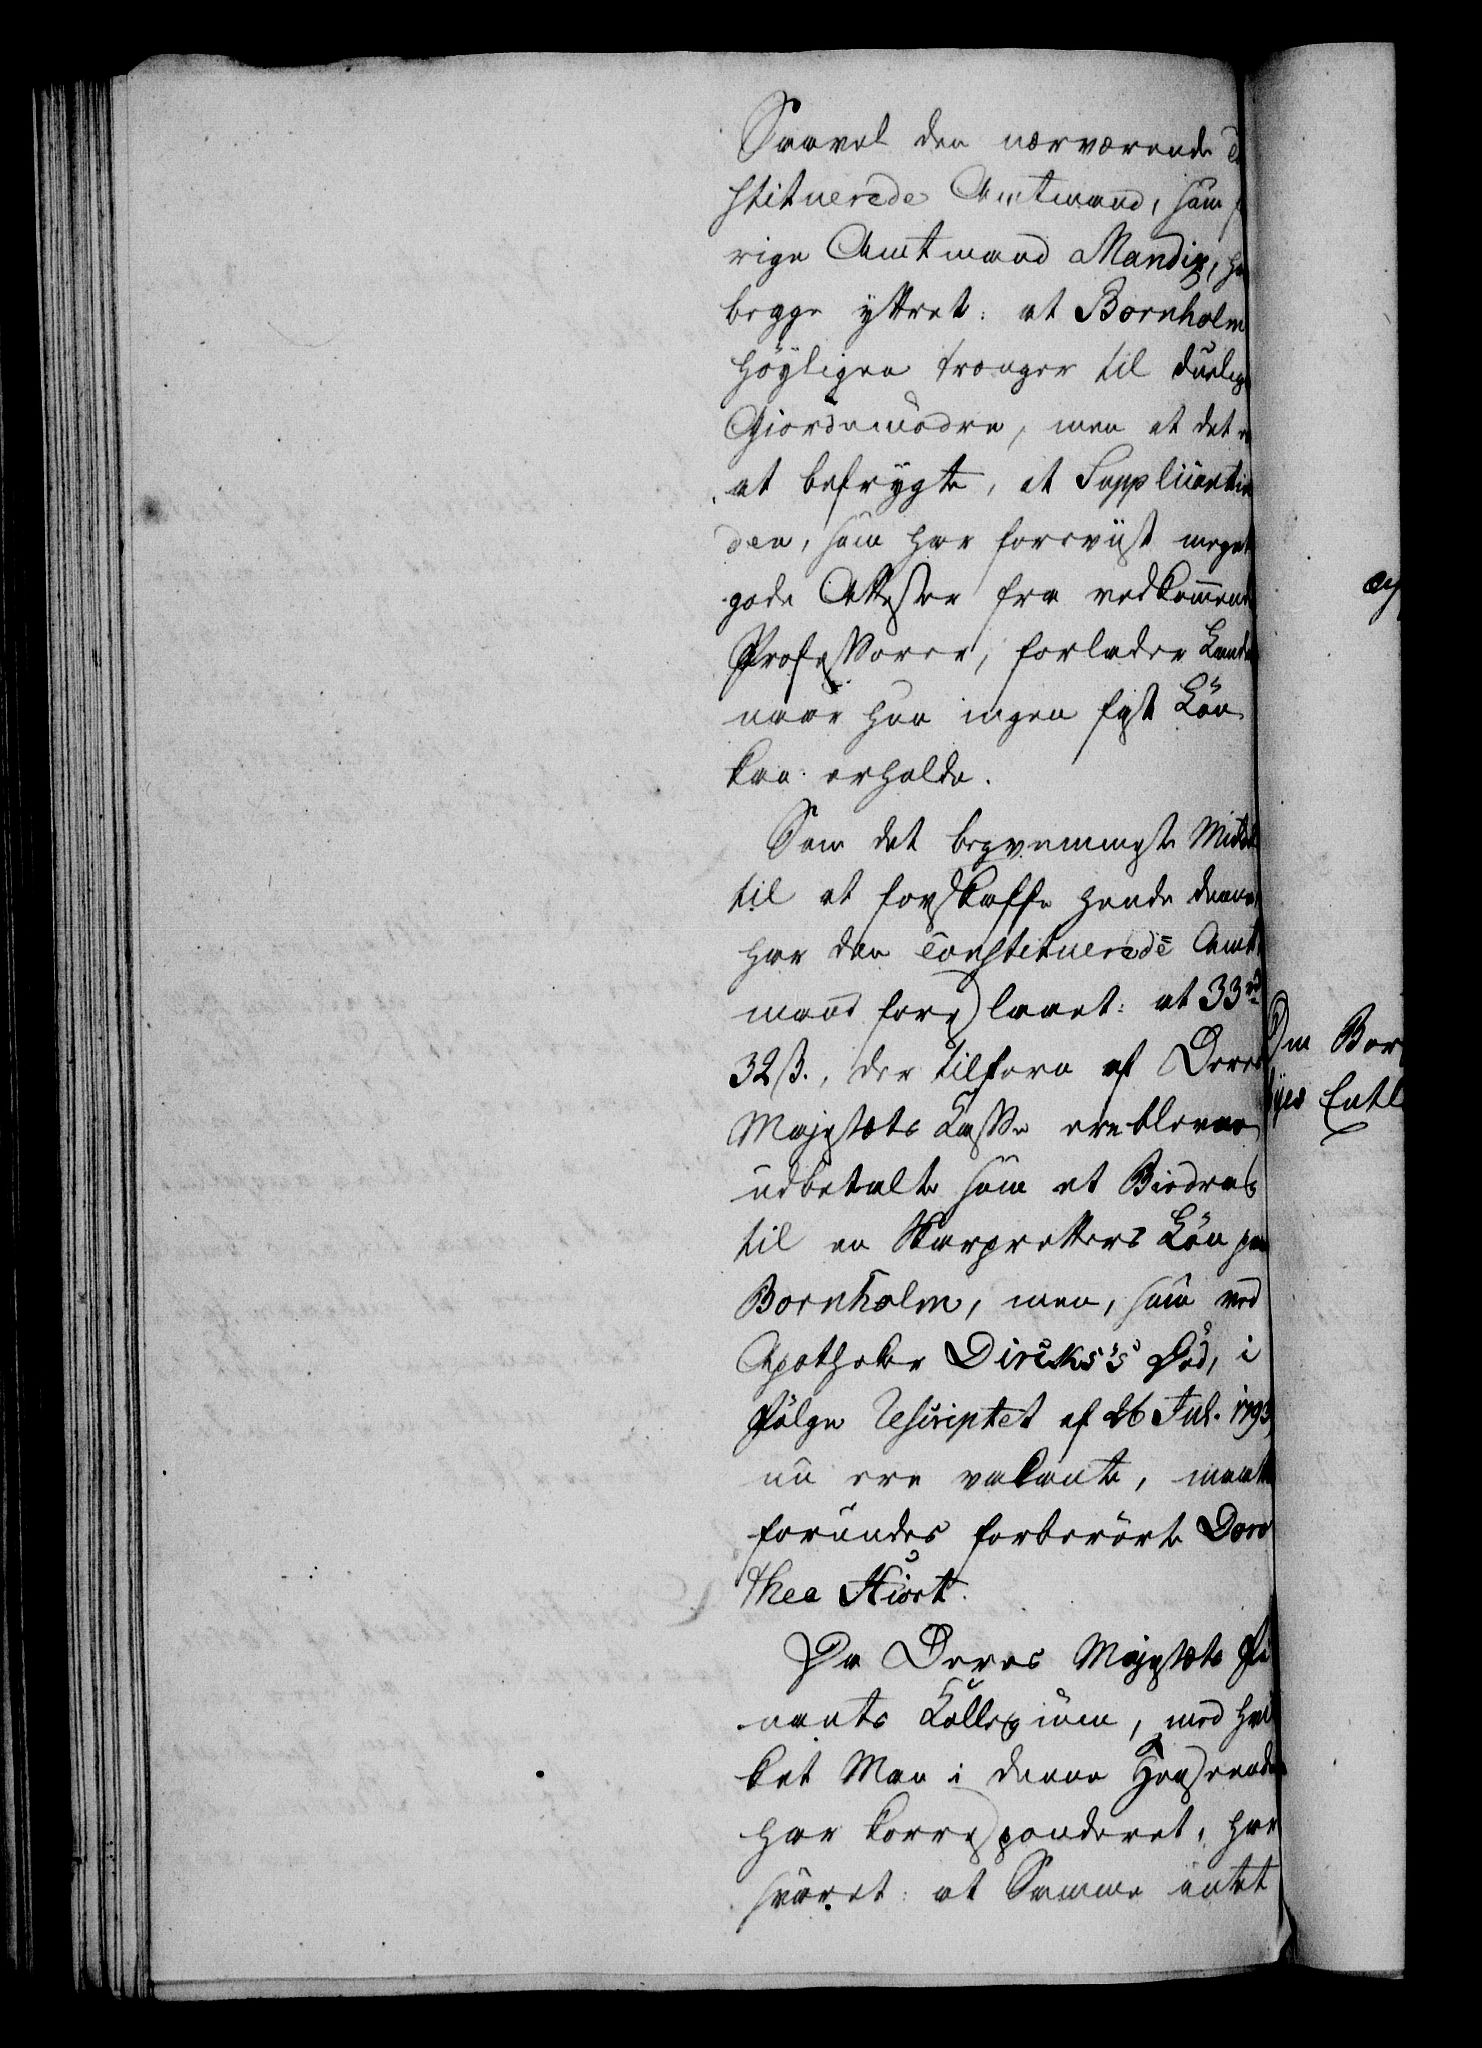 Saavel den nærværende
stituerede Amtmand, som
rige Amtmand Mandix,
begge yttret: at Bornholm
höyligen trænger til duelige
Giordemödre, men at det
at befrygte, at Supplicantin
den, som har foreviist meget
gode Attester fra vedkommende
Professorer, forlader Landet
naar hun ingen fast Lön
kan erholde.
Som det beqvemmeste Middel
til at forskaffe hende denne
har den Constituerede Amt
mand foreslaaet: at 33 rd
32 ß., der tilforn af Deres
Majestæts Casse ere blevne
udbetalte som et Biedrag
til en Skarpretters Lön paa
Bornholm, men, som ved
Apotheker Dircks's Död, i
Fölge Rescriptet af 26 Jul. 1793
nu ere vakante, maatte
forundes forberörte Doro
thea Hiort.
Da Deres Majestæts Fi
nants Collegium, med hvil
ket Man i denne Henseende
har korresponderet, har
svaret: at Samme intet
Om Bor